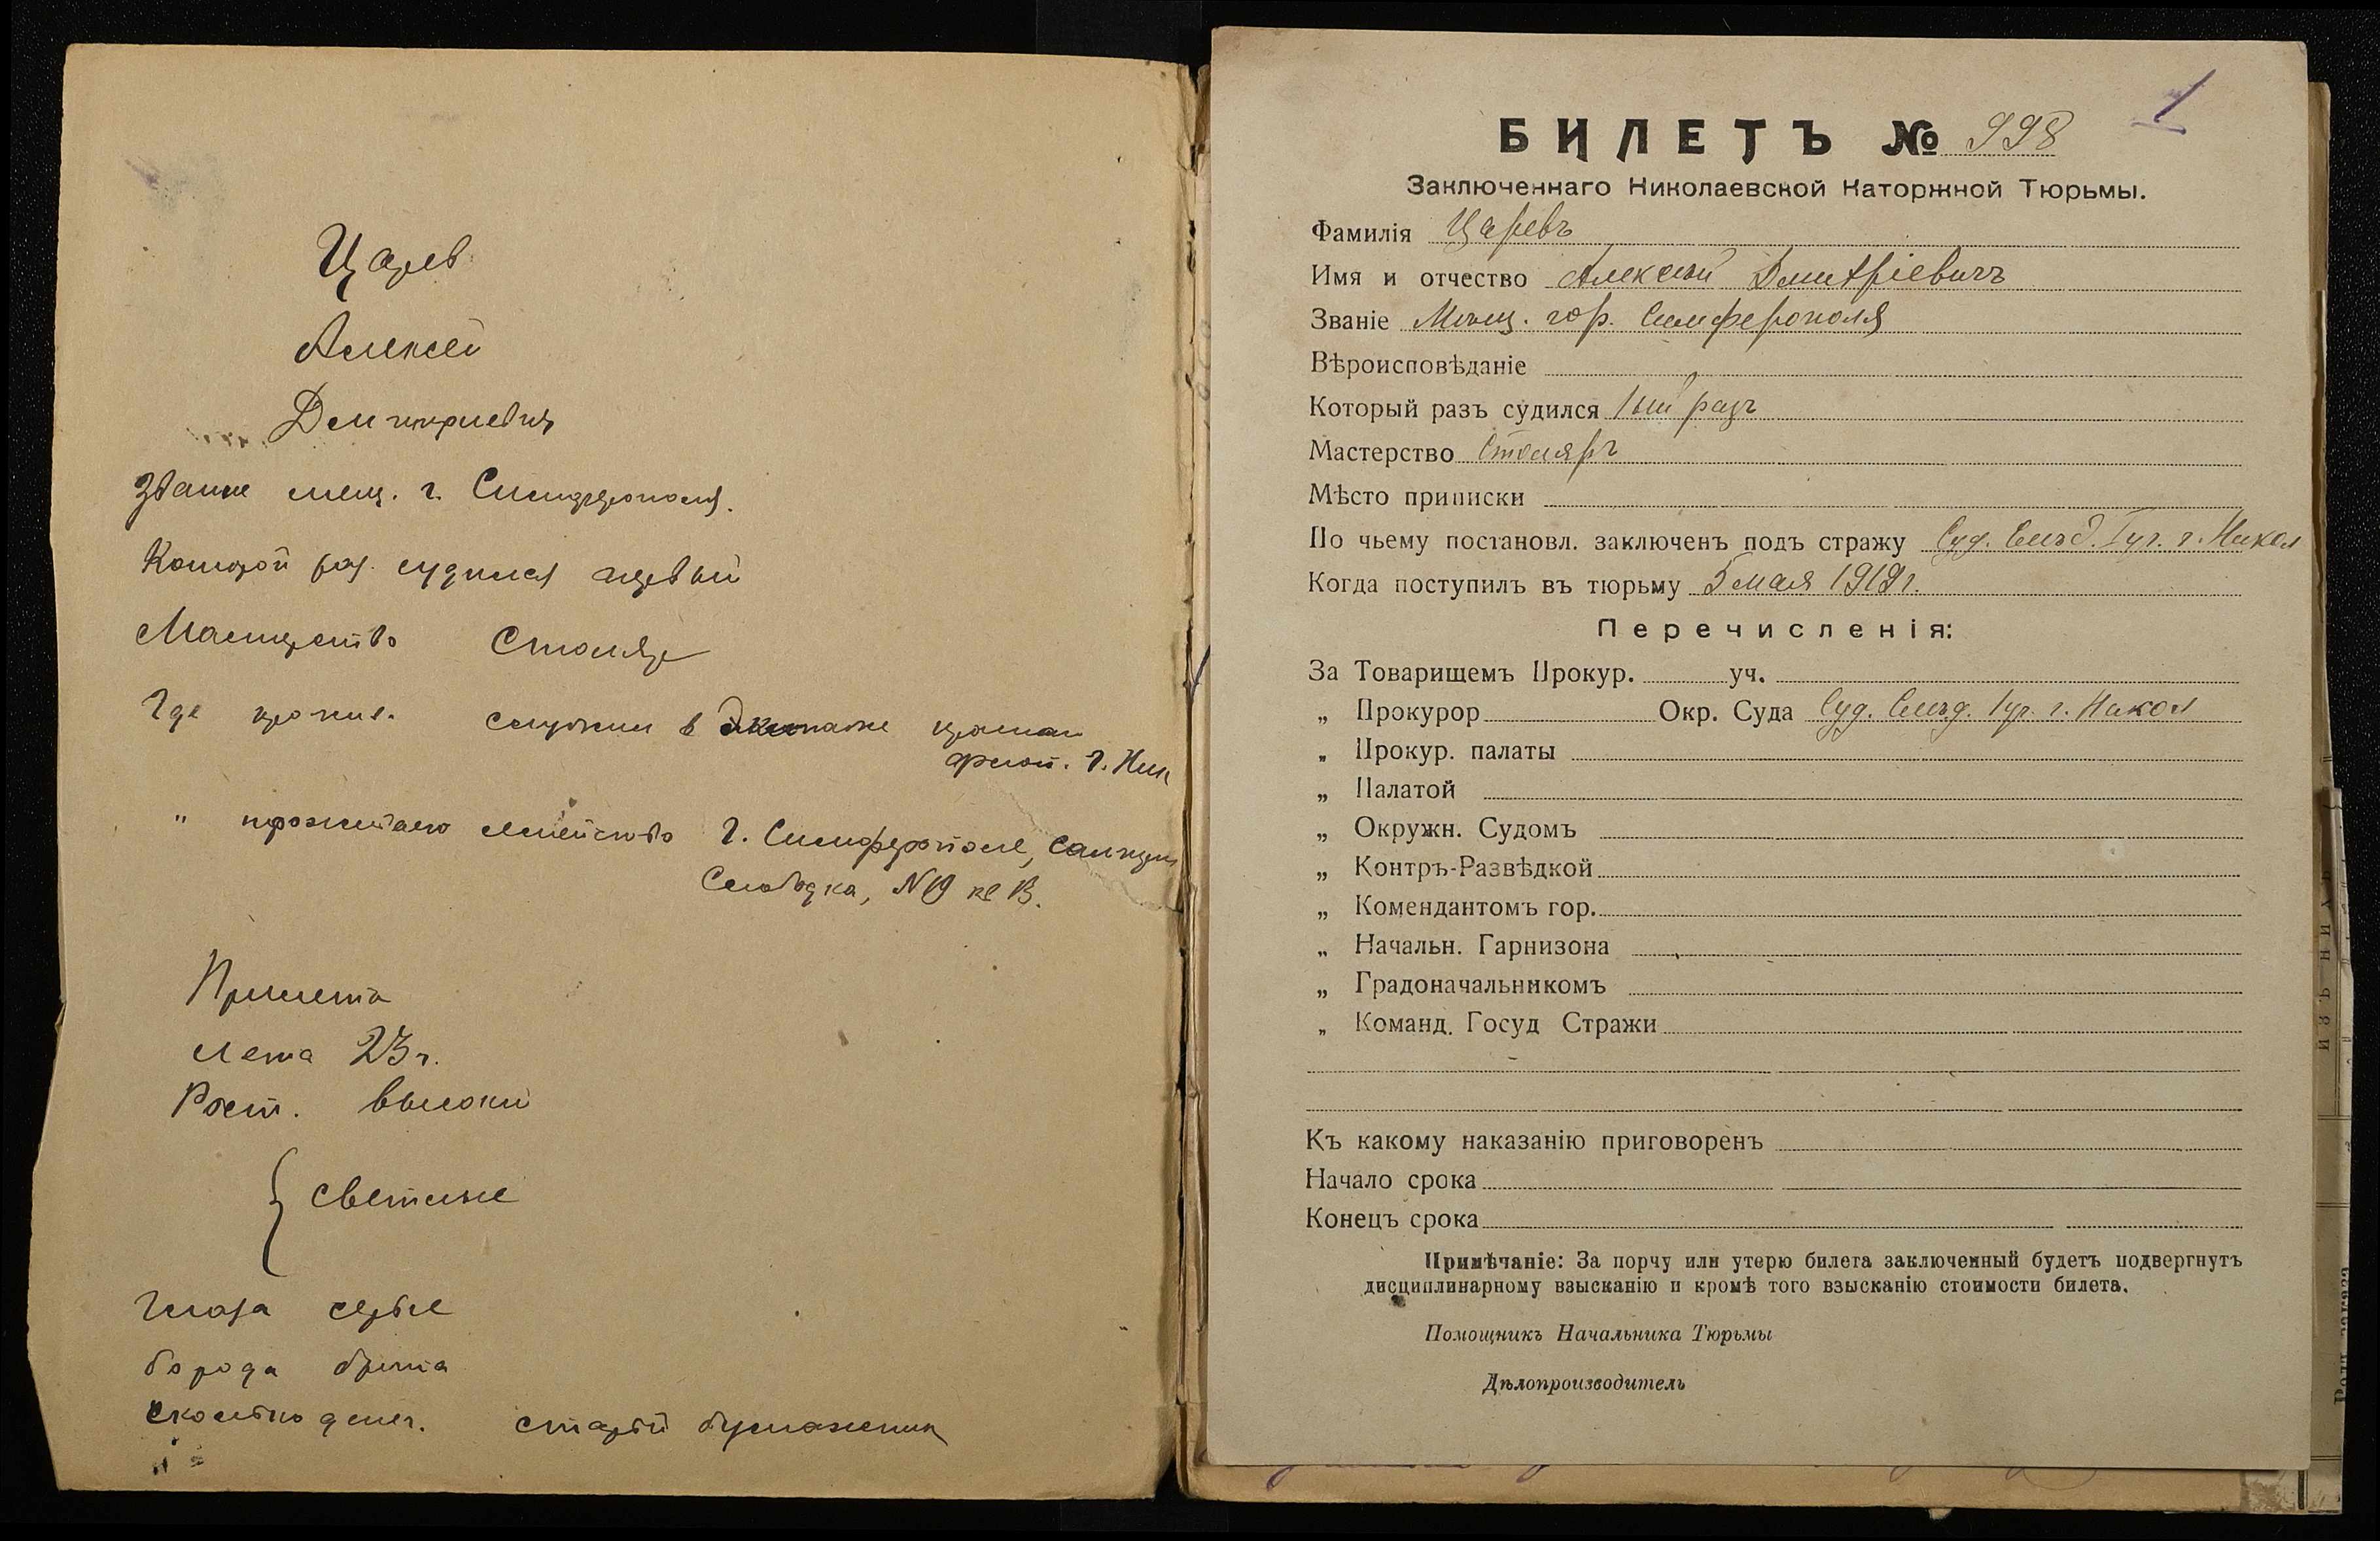 Царев
Алексей
Дмитриевич
Звание мещ. г. Симферополя.
Которой раз. судился первый
Мастерство Столяр
Где прожив. служил в Экипаже
флот. г. Ник
" прожитало семейство г. Симферополе,
Слободка, N 19 кв 13.
Примета
Лета 23 г.
Рост. высоки
{ светлые
Глаза серые
борода брита
Сколько денег. старый бумажник
1
БИЛЕТЪ № 998
Заключеннаго Николаевской Каторжной Тюрьмы.
Фамилія Царевъ
Имя и отчество Алексѣй Дмитріевичъ
Званіе Мѣщ. гор. Симферополя
Вѣроисповѣданіе
Который разъ судился 1ый разъ
Мастерство Столяръ
Мѣсто приписки
По чьему постановл. заключенъ подъ стражу Суд. Слѣд. г. Никол
Когда поступилъ въ тюрьму 5 мая 1919 г.
Перечисленія:
За Товарищемъ Прокур. уч.
„ Прокурор Окр. Суда Суд. Слѣд. г. Никол
„ Прокур. палаты
„ Палатой
„ Окружн. Судомъ
„ Контръ-Развѣдкой
„ Комендантомъ гор.
„ Начальн. Гарнизона
„ Градоначальникомъ
„ Команд. Госуд Стражи
Къ какому наказанію приговоренъ
Начало срока
Конецъ срока
Примѣчаніе: За порчу или утерю билета заключенный будетъ подвергнутъ
дисциплинарному взысканію и кромѣ того взысканію стоимости билета.
Помощникъ Начальника Тюрьмы
Дѣлопроизводитель